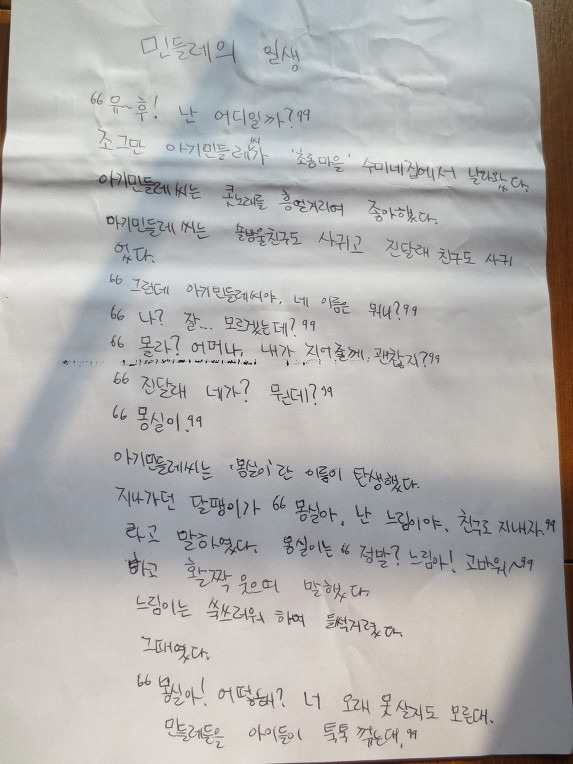 민들레의 일생
“유~후! 난 어디일까?”
조그만 아기민들레씨가 '초롱마을' 수미네집에서 날라왔다.
아기민들레씨는 콧노래를 흥얼거리며 좋아했다.
아기민들레씨는 솔방울친구도 사귀고 진달래친구도 사귀
었다.
“그런데 아기민들레씨야, 네 이름은 뭐니?”
“나? 잘... 모르겠는데?”
“몰라? 어머나, 내가 지어줄께, 괜찮지?”
“진달래 네가? 뭔데?”
“몽실이.”
아기민들레씨는 '몽실이'란 이름이 탄생했다.
지나가던 달팽이가 “몽실아, 난 느림이야, 친구로 지내자.”
라고 말하였다. 몽실이는 “정말? 느림아! 고마워~”
하고 활짝 웃으며 말했다.
느림이는 쑥쓰러워 하며 들썩거렸다.
그때였다.
“몽실아! 어떻해? 너 오래 못 살지도 모른대.
민들레들을 아이들이 톡톡 꺾는대.”